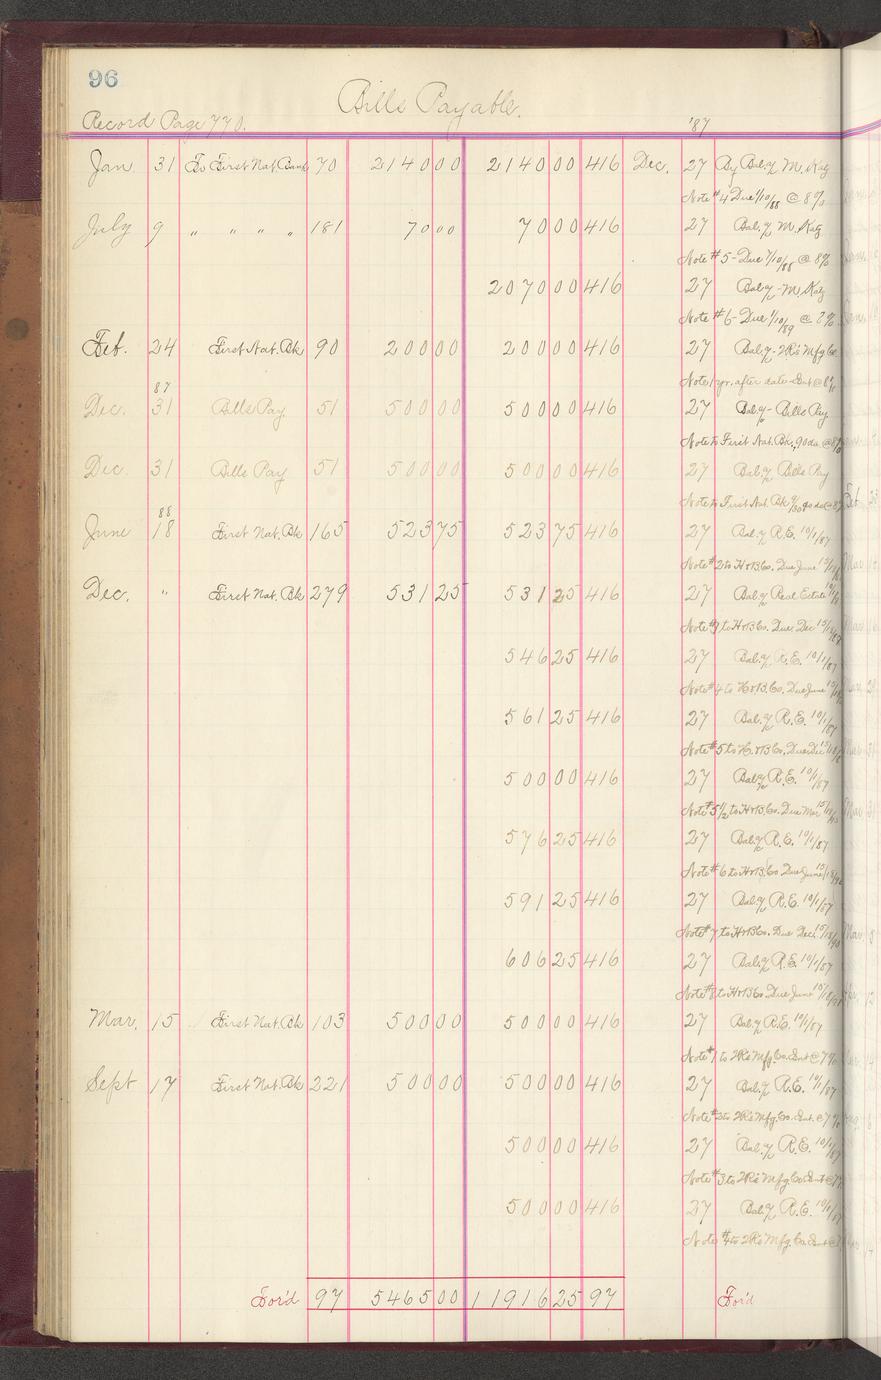 96
Bills Payable.
Record Page 770.
'87
Jan. 31 To First Nat. Bank 70 2140 00 2140 00 416 Dec. 27 By Bal. a/c M. Katz
Note #4 Due 1/10/88 @ 8%
July 9 " " " " 181 70 00 70 00 416 27 Bal. a/c M. Katz
Note #5 - Due 7/10/88 @ 8%
2070 00 416 27 Bal. a/c - M. Katz
Note #6 - Due 1/10/89 @ 8%
Feb. 24 First Nat. Bk 90 200 00 200 00 416 27 Bal. a/c - 2R's Mfg Co
Note 1 yr. after date - Int @ 8%
87
Dec. 31 Bills Pay 51 500 00 500 00 416 27 Bal. a/c - Bills Pay
Note to First Nat. Bk., 90 da. @ 8%
Dec. 31 Bills Pay 51 500 00 500 00 416 27 Bal. a/c Bills Pay
Note to First Nat. Bk 90 da @
88
June 18 First Nat. Bk 165 523 75 523 75 416 27 Bal. a/c R.E. 10/1/87
Note #2 to H & B. Co. Due June
Dec. " First Nat. Bk 279 531 25 531 25 416 27 Bal. a/c Real Estate
Note #3 to H & B Co. Due Dec
546 25 416 27 Bal. a/c R.E. 10/1/87
Note #4 to H & B. Co. Due June
561 25 416 27 Bal. a/c R.E. 10/1/87
Note #5 to H. & B Co. Due Dec
500 00 416 27 Bal. a/c R.E. 10/1/87
Note #5 1/2 to H & B. Co. Due Mar
576 25 416 27 Bal. a/c R.E. 10/1/87
Note #6 to H & B. Co Due June
591 25 416 27 Bal. a/c R.E. 10/1/87
Note #7 to H & B Co. Due Dec.
606 25 416 27 Bal. a/c R.E. 10/1/87
Note #8 to H & B Co Due June
Mar. 15 First Nat. Bk 103 500 00 500 00 416 27 Bal. a/c R.E. 10/1/87
Note #1 to 2R's Mfg. Co. Int @ 7%
Sept 17 First Nat. Bk 221 500 00 500 00 416 27 Bal. a/c R.E. 10/1/87
Note #2 to 2R's Mfg. Co. Int. @ 7%
500 00 416 27 Bal. a/c R.E. 10/1/87
Note #3 to 2R's Mfg Co. Int @ 7
500 00 416 27 Bal. a/c R.E. 10/1/87
Note #4 to 2R's Mfg. Co. Int @
For'd 97 5465 00 11916 25 97 For'd